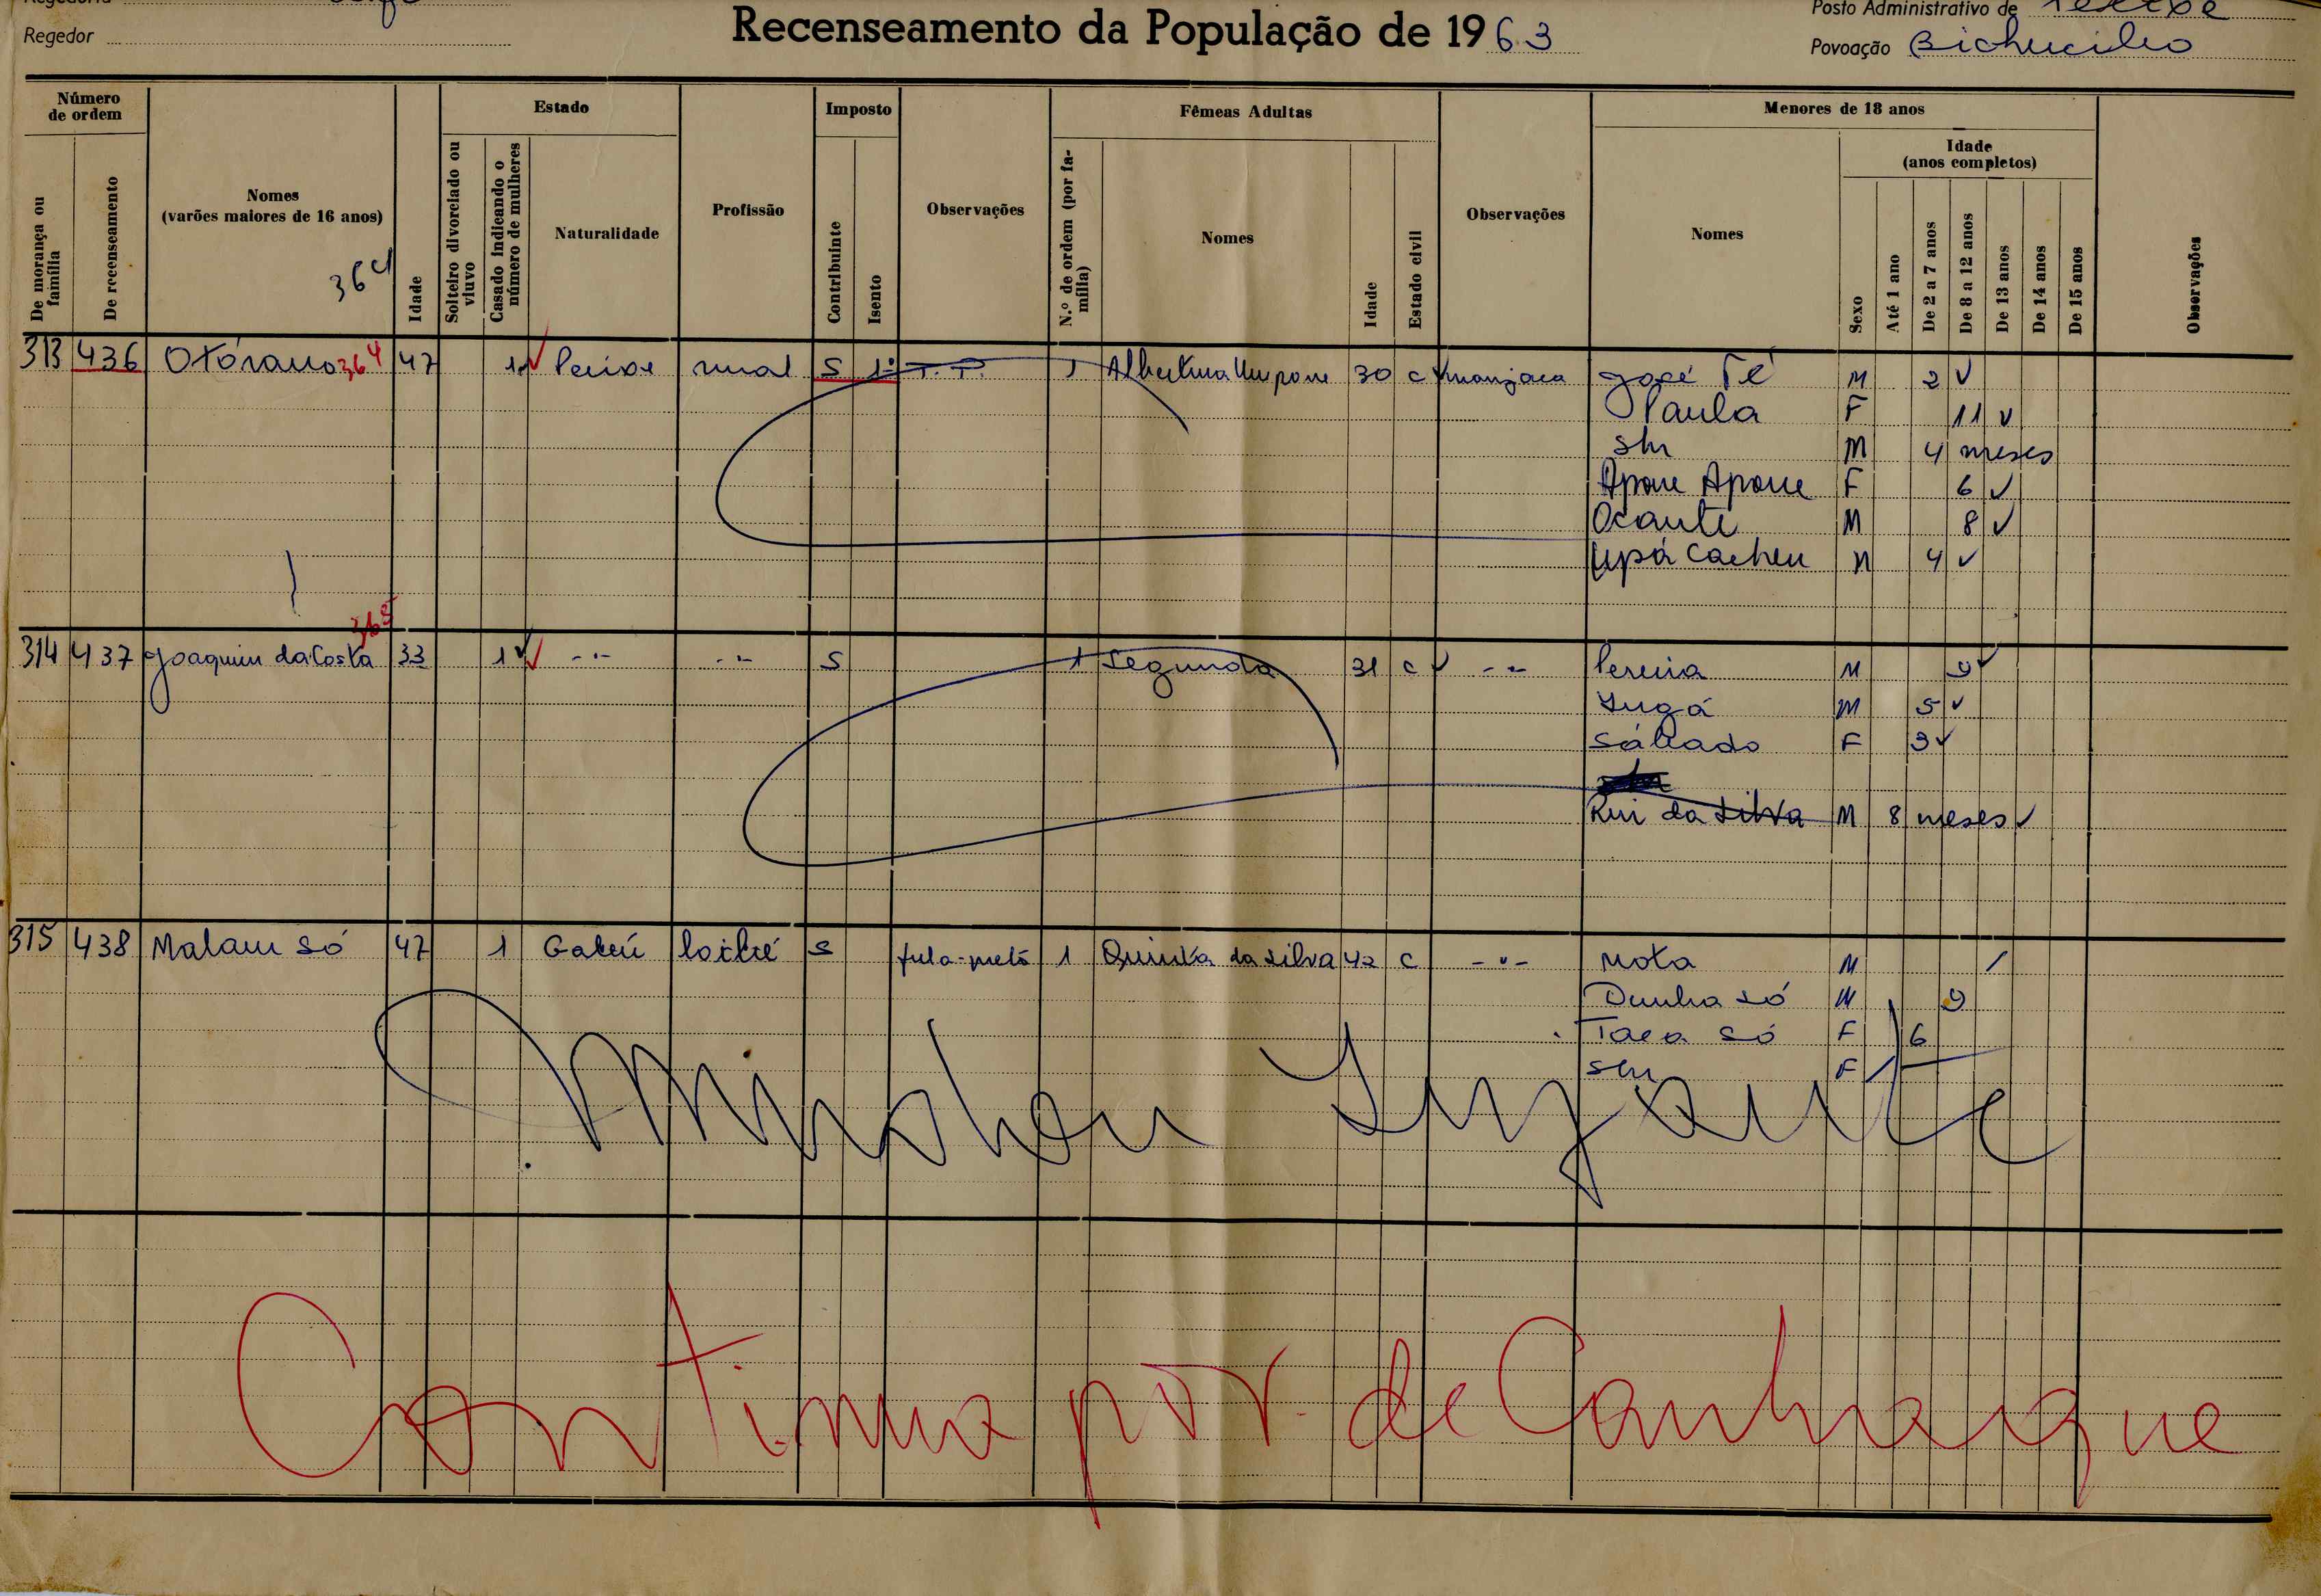 Regedor
Recenseamento da População de 1963
Posto Administrativo de
Povoação
Número de ordem
De morança ou família
De recenseamento
Nomes
(varões maiores de 16 anos)
364
Idade
Estado
Solteiro divorciado ou viuvo
Casado indicando o número de mulheres
Naturalidade
Profissão
Imposto
Contribuinte
Isento
Observações
Fêmeas Adultas
N.º de ordem (por família)
Nomes
Idade
Estado civil
Observações
Menores de 18 anos
Nomes
Sexo
Idade
(anos completos)
Até 1 ano
De 2 a 7 anos
De 8 a 12 anos
De 13 anos
De 14 anos
De 15 anos
Observações
313 436 364 47 1 rural S 1 Albertina 30 c manjaca José Té M 2
Paula F 11
M 4 meses
Apone Apone F 6
Ocante M 8
Upá Cacheu M 4
365
314 437 Joaquim da Costa 33 1 -"- -"- S 1 Segunda 31 c -"- Pereira M 9
M 5
Sábado F 3
Rui da Silva M 8 meses
315 438 Malam Só 47 1 Gabú S fula-preto 1 Quinta da Silva 42 c -"- Mota M
Dunha Só M 9
Só F 6
F
Continua pov. de Canhaque